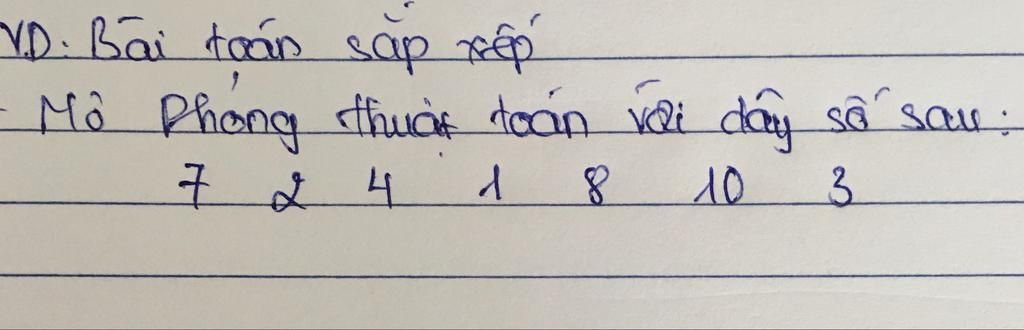 VD: Bài toán sắp xếp
- Mô Phỏng thuật toán với dãy số sau:
7 2 4 1 8 10 3